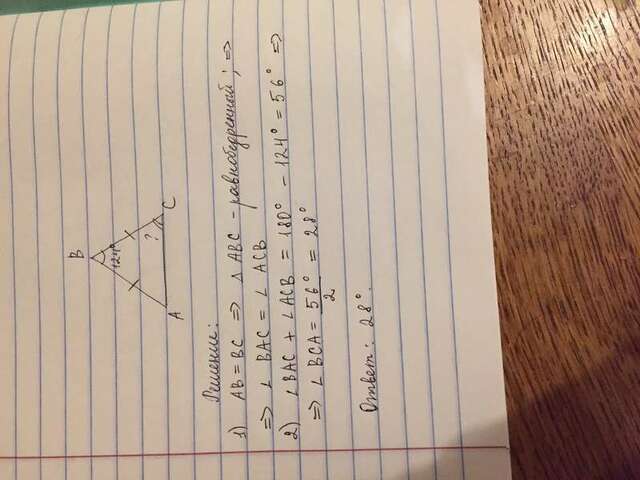 B
124°
?
A
C
Решение:
1) AB = BC ⇒ △ ABC - равнобедренный; ⇒
⇒ ∠ BAC = ∠ ACB
2) ∠BAC + ∠ACB = 180° - 124° = 56° ⇒
⇒ ∠ BCA = 56°/2 = 28°
Ответ: 28°.